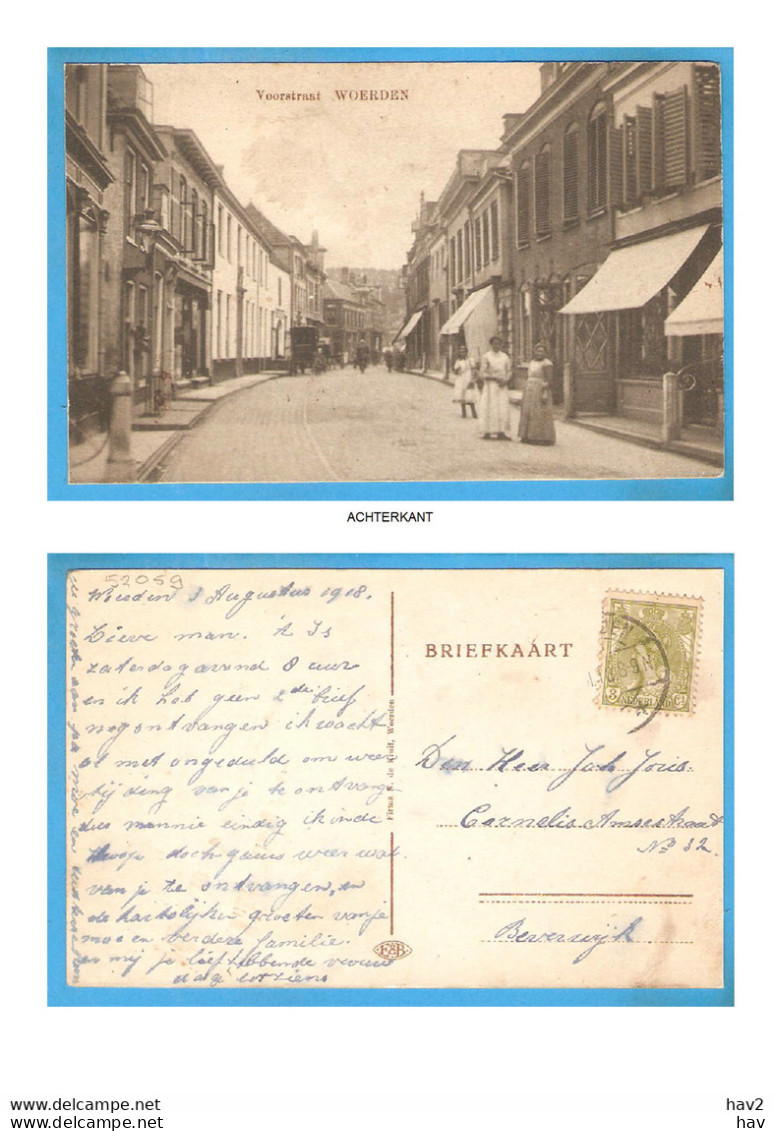 Voorstraat WOERDEN
ACHTERKANT
52059
Woerden 3 Augustus 1918.
Lieve man. 't Is
zaterdagavond 8 uur
en ik heb geen 2de brief
nog ontvangen ik wacht
al met ongeduld om weer
tijding van je te ontvange
dus mannie eindig ik in de
hoop doch gauw weer wat
van je te ontvangen, en
de hartelijken groeten van je
moe en verdere familie.
en mij je liefhebbende vrouw
dag
Firma K. de Kruif, Woerden
EAB
BRIEFKAART
3 NEDERLAND Ct
Den Heer Joh
Cornelis
No 32.
Beverwijk
hav2
https://www.delcampe.net
hav
https://www.delcampe.net